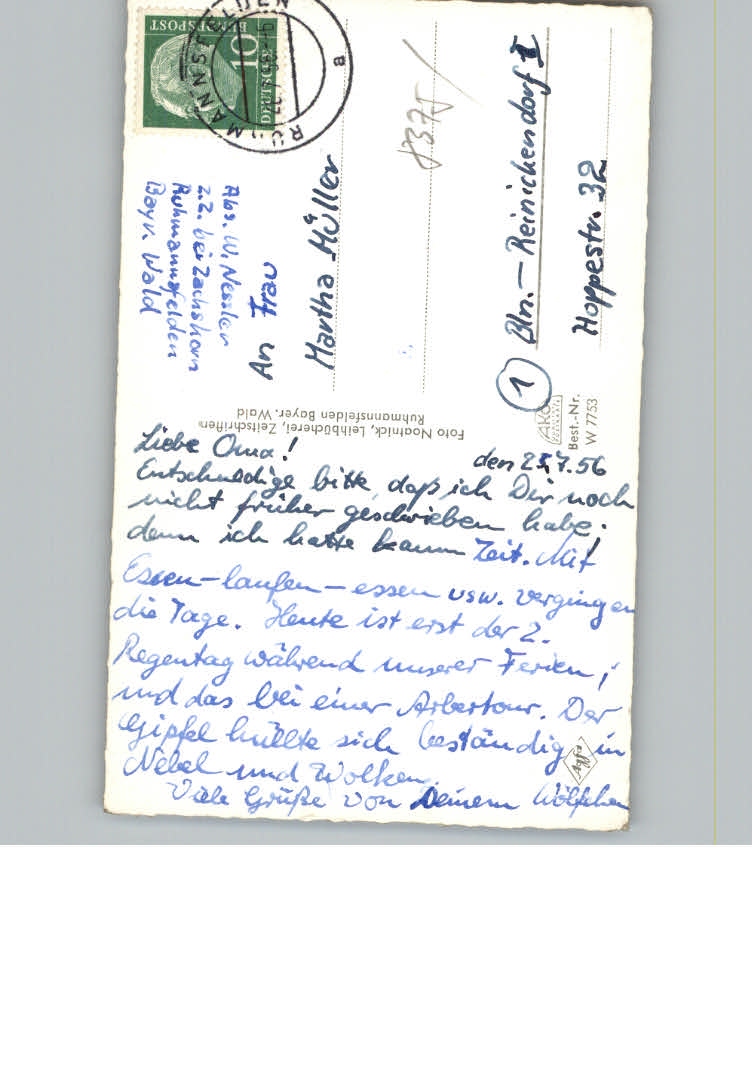 Liebe Oma!
den 25.7.56
Entschuldige bitte, daß ich Dir noch
nicht früher geschrieben habe;
denn ich hatte kaum Zeit. Mit
Essen-laufen-essen usw. vergingen
die Tage. Heute ist erst der 2.
Regentag während unserer Ferien,
und das bei einer Arbertour. Der
Gipfel hüllte sich beständig in
Nebel und Wolken.
Viele Grüße von Deinem Wölfchen
Abs. W. Nessler
z.Z. bei Zachshorn
Ruhmannsfelden
Bayr. Wald
An Frau
Martha Müller
1 Bln.-Reinickendorf I
Hoppestr. 32
8375/
Foto Noatnick, Leihbücherei, Zeitschriften
Ruhmannsfelden Bayer. Wald
AKO
Best.-Nr.
W 7753
Agfa
DEUTSCHE
BUNDESPOST
10
RUHMANNSFELDEN
a